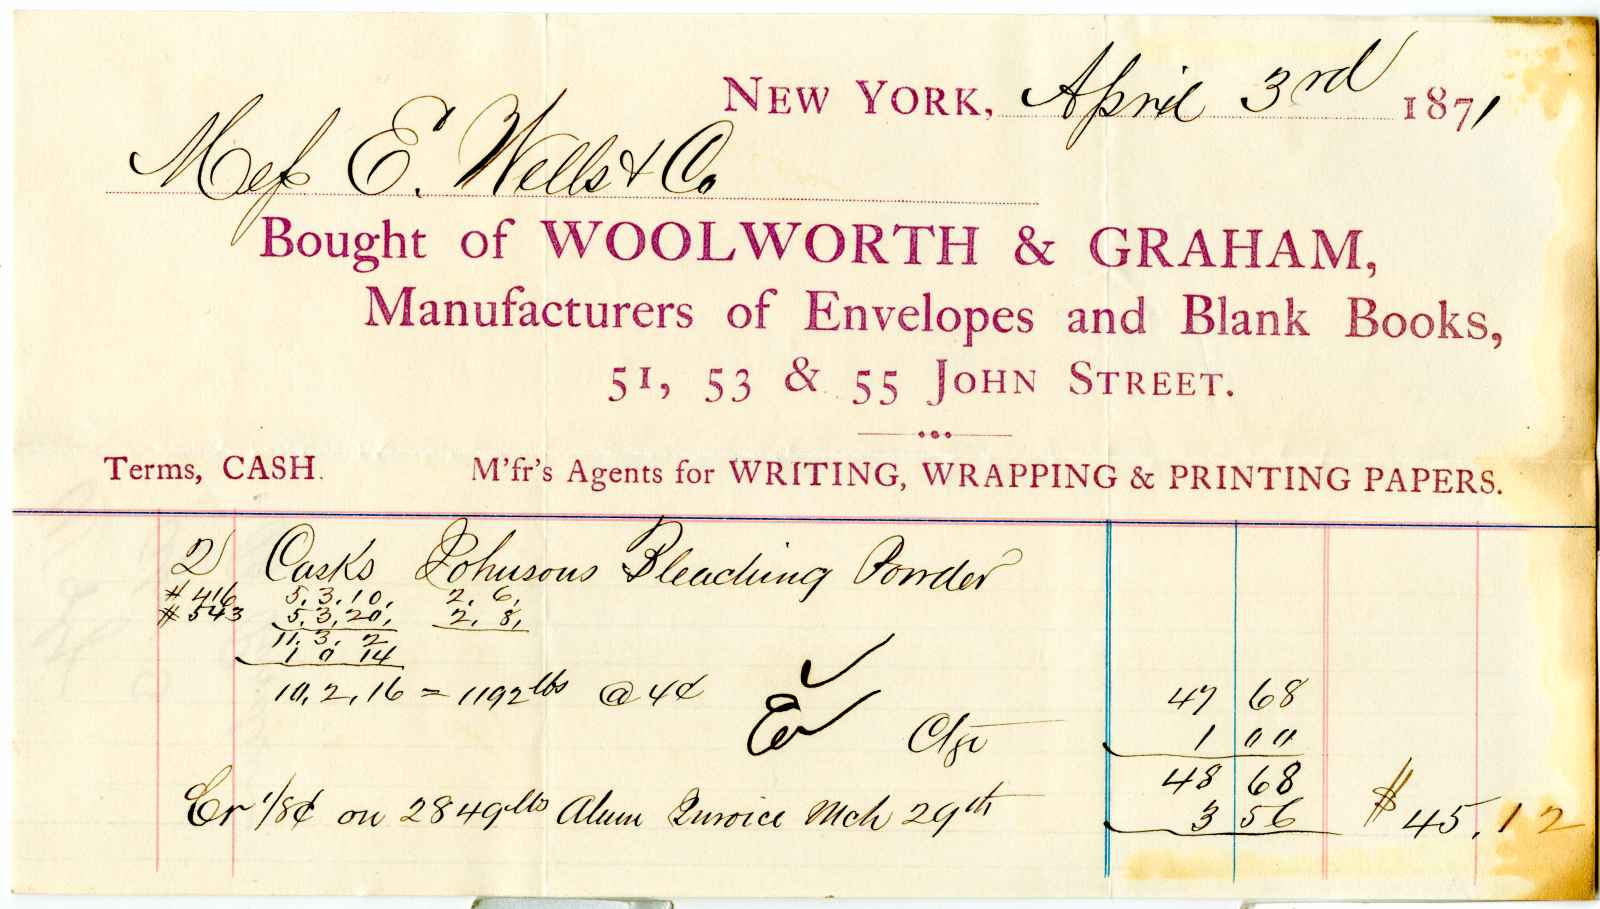 NEW YORK, April 3rd 1871
Mess E. Wells & Co
Bought of WOOLWORTH & GRAHAM,
Manufacturers of Envelopes and Blank Books,
51, 53 & 55 JOHN STREET.
Terms, CASH. M'fr's Agents for WRITING, WRAPPING & PRINTING PAPERS.
2 Casks Johnsons Bleaching Powder
# 416 5,3,10, 2,6,
# 543 5,3,20, 2,8,
11,3,2
1 0 14
10,2,16 = 1192 lbs @ 4¢ 47 68
Ctge 1 00
48 68
Cr 1/8¢ on 2849 lbs Alum Invoice Mch 29th 3 56 $45.12